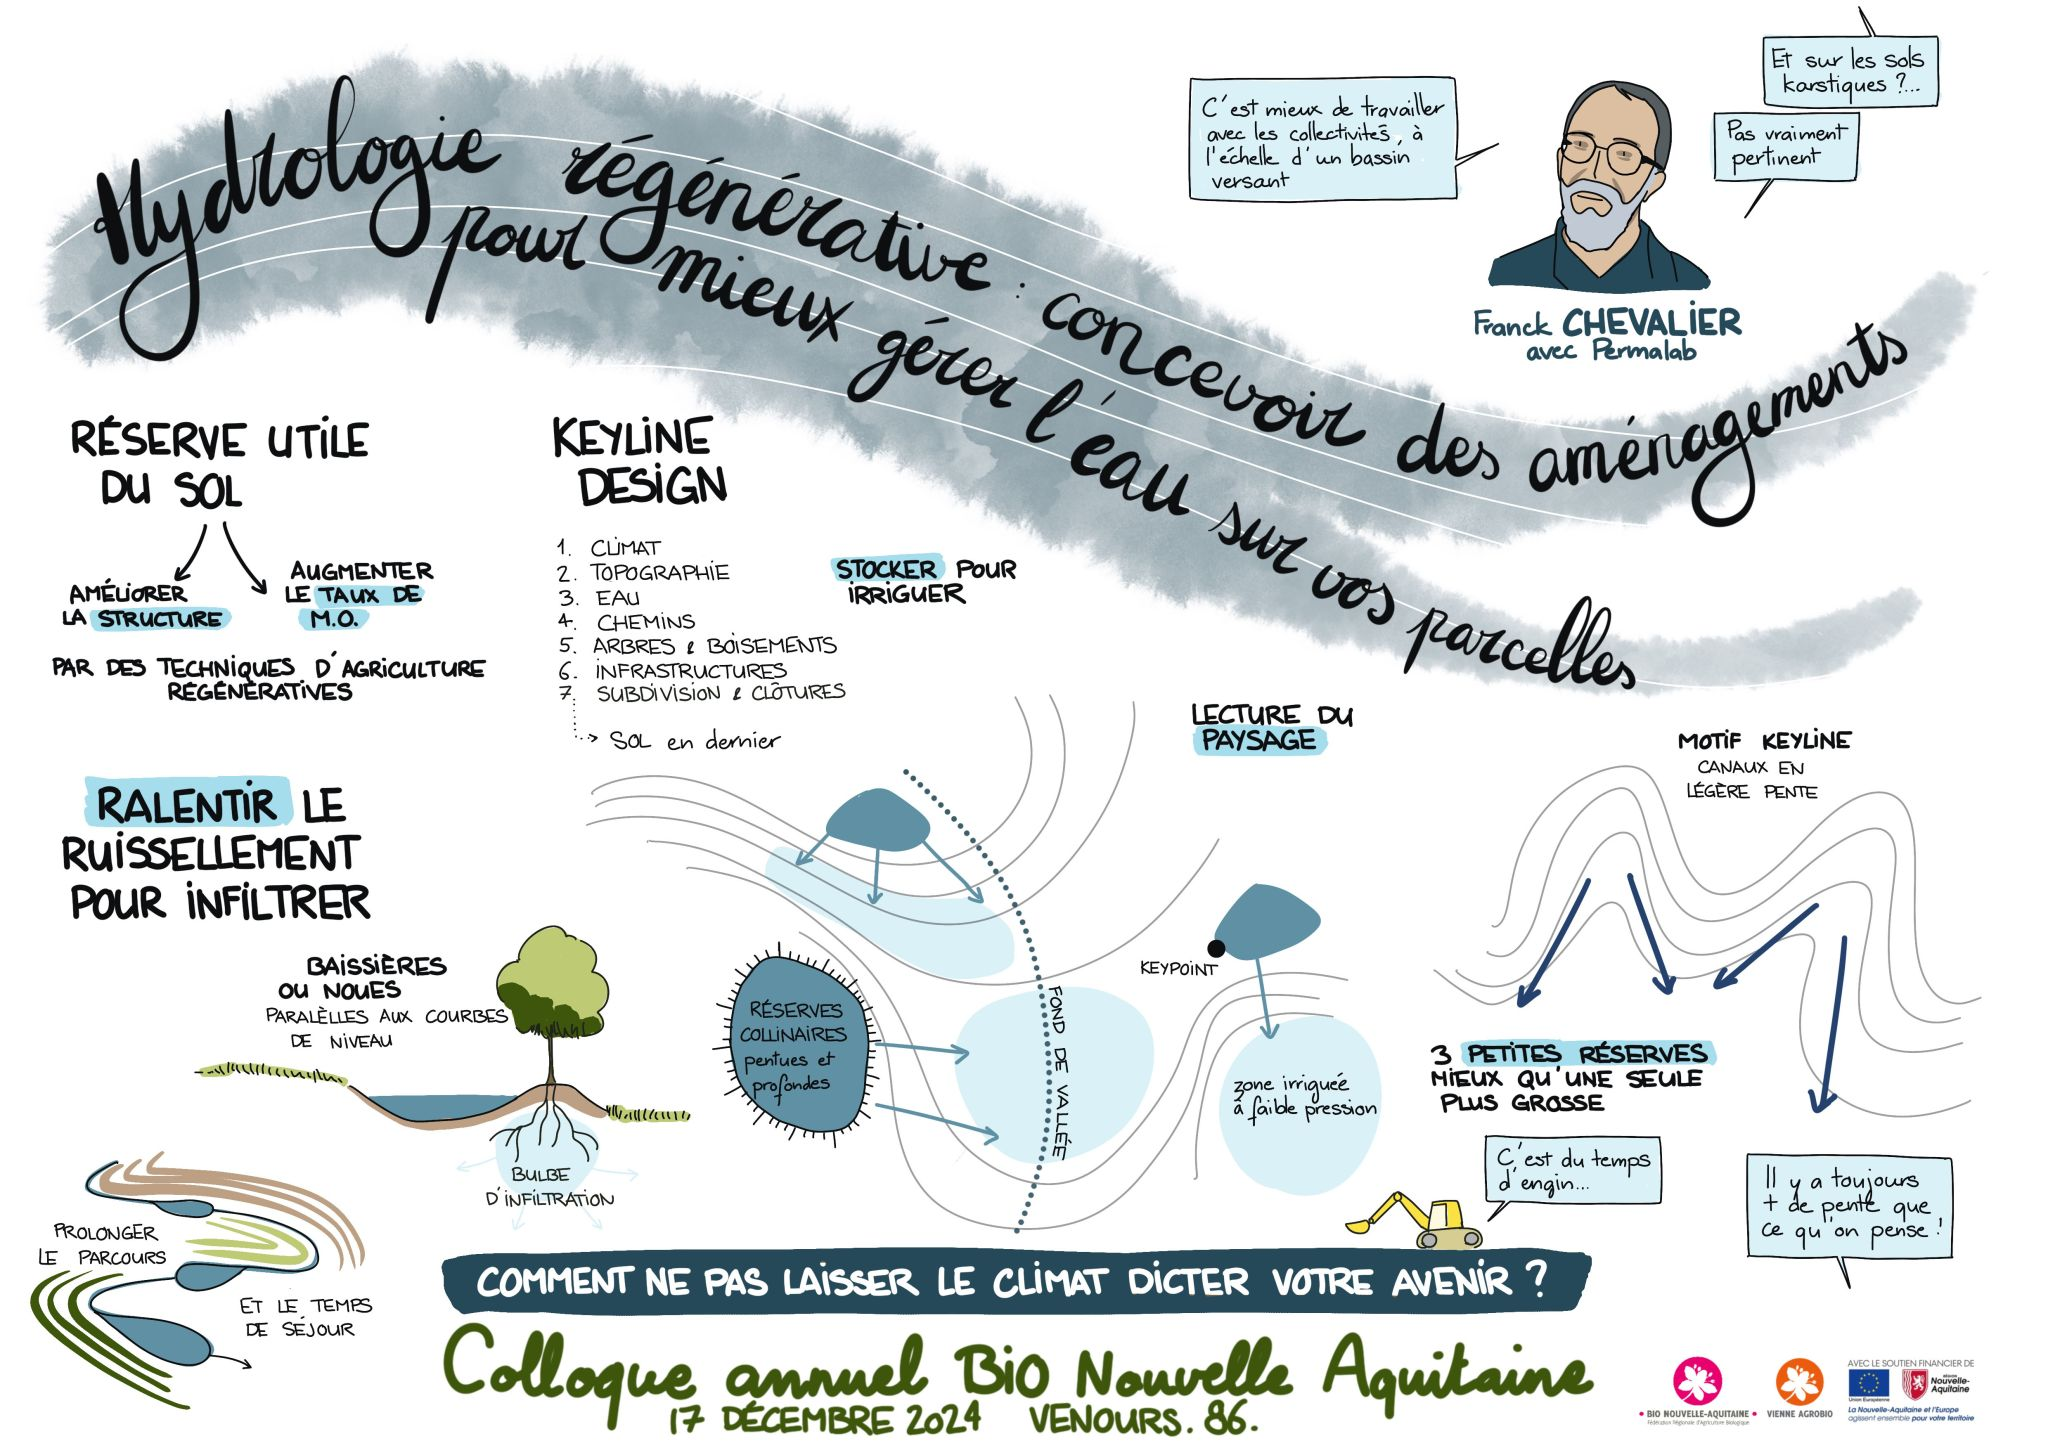 Hydrologie régénérative : concevoir des aménagements
pour mieux gérer l'eau sur vos parcelles
C'est mieux de travailler
avec les collectivités, à
l'échelle d'un bassin
versant
Et sur les sols
karstiques ?...
Pas vraiment
pertinent
Franck CHEVALIER
avec Permalab
RÉSERVE UTILE
DU SOL
AMÉLIORER
LA STRUCTURE
AUGMENTER
LE TAUX DE
M.O.
PAR DES TECHNIQUES D'AGRICULTURE
RÉGÉNÉRATIVES
KEYLINE
DESIGN
1. CLIMAT
2. TOPOGRAPHIE
3. EAU
4. CHEMINS
5. ARBRES & BOISEMENTS
6. INFRASTRUCTURES
7. SUBDIVISION & CLÔTURES
SOL en dernier
STOCKER POUR
IRRIGUER
LECTURE DU
PAYSAGE
MOTIF KEYLINE
CANAUX EN
LÉGÈRE PENTE
RALENTIR LE
RUISSELLEMENT
POUR INFILTRER
BAISSIÈRES
OU NOUES
PARALÈLLES AUX COURBES
DE NIVEAU
BULBE
D'INFILTRATION
RÉSERVES
COLLINAIRES
pentues et
profondes
FOND DE VALLÉE
KEYPOINT
zone irriguée
à faible pression
3 PETITES RÉSERVES
MIEUX QU'UNE SEULE
PLUS GROSSE
C'est du temps
d'engin...
Il y a toujours
+ de pente que
ce qu'on pense !
PROLONGER
LE PARCOURS
ET LE TEMPS
DE SÉJOUR
COMMENT NE PAS LAISSER LE CLIMAT DICTER VOTRE AVENIR ?
Colloque annuel BIO Nouvelle Aquitaine
17 DÉCEMBRE 2024 VENOURS. 86.
• BIO NOUVELLE-AQUITAINE •
Fédération Régionale d'Agriculture Biologique
VIENNE AGROBIO
AVEC LE SOUTIEN FINANCIER DE
Union Européenne
RÉGION
Nouvelle-
Aquitaine
La Nouvelle-Aquitaine et l'Europe
agissent ensemble pour votre territoire